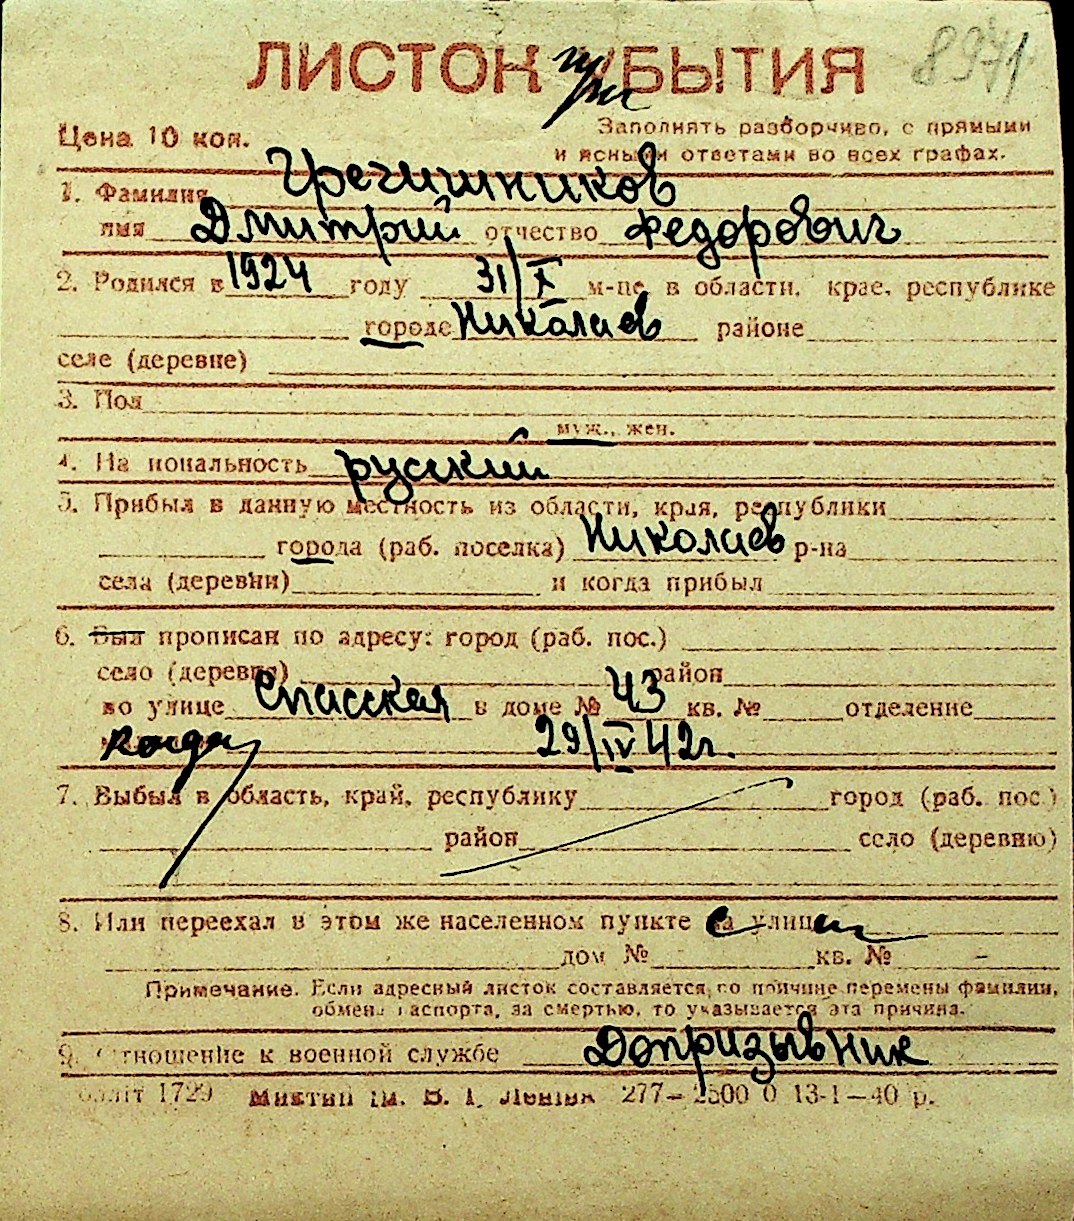 8971
ЛИСТОК при УБЫТИЯ
Цена 10 коп. Заполнять разборчиво, с прямыми
и ясными ответами во всех графах.
1. Фамилия Гречишников
имя Дмитрий отчество Федорович
2. Родился в 1924 году 31/X м-це, в области, крае, республике
городе Николаев районе
селе (деревне)
3. Пол
муж., жен.
4. На иональность русский
5. Прибыл в данную местность из области, края, республики
города (раб. поселка) Николаев р-на
села (деревни) и когда прибыл
6. Был прописан по адресу: город (раб. пос.)
село (деревня) район
по улице Спасская в доме № 43 кв. № отделение
когда 29/IV 42г.
7. Выбыл в область, край, республику город (раб. пос.)
район село (деревню)
8. Или переехал в этом же населенном пункте с улицы
дом № кв. № -
Примечание. Если адресный листок составляется по причине перемены фамилии,
обмена паспорта, за смертью, то указывается эта причина.
9. Отношение к военной службе Допризывник
1729 277-2500 0 13-1-40 р.